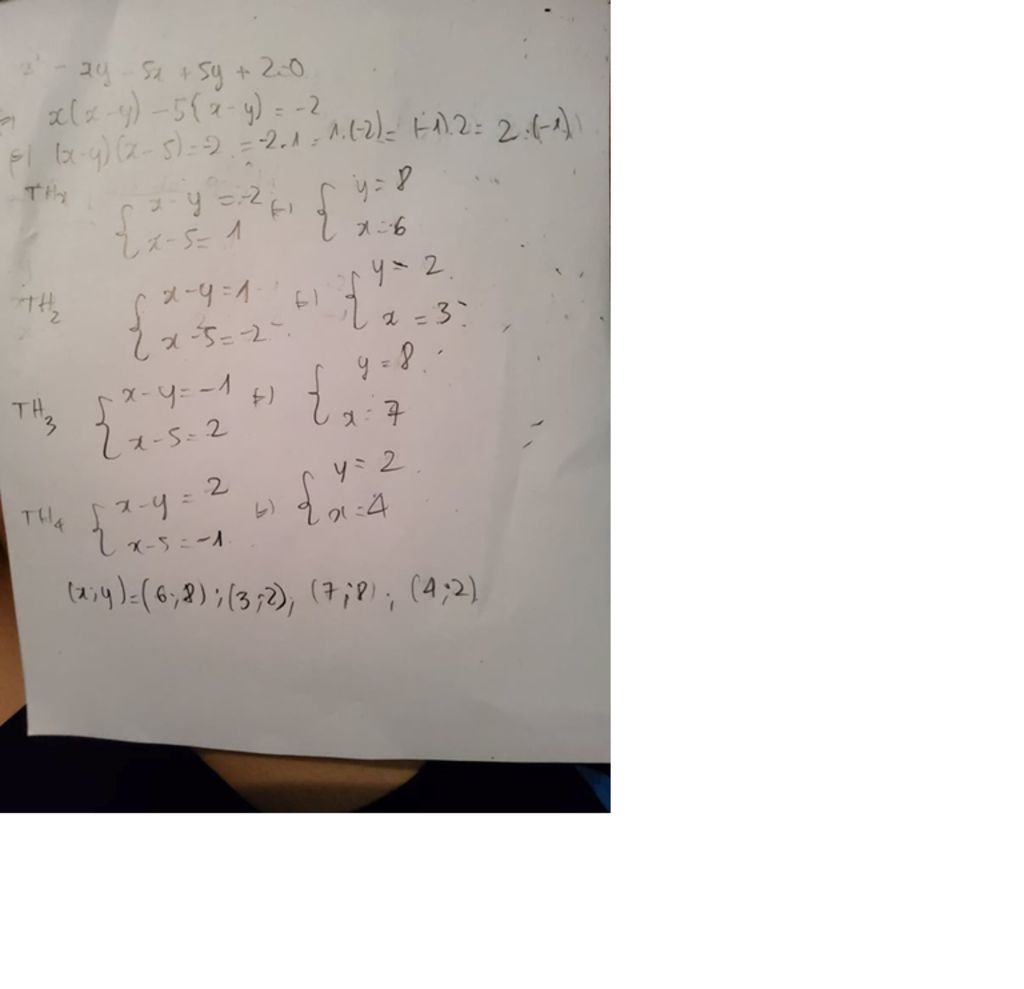 x² - xy - 5x + 5y + 2=0
⇔ x(x-y) - 5(x-y) = -2
⇔ (x-y)(x-5)=-2 = -2.1 = 1.(-2)= (-1).2= 2.(-1)
TH1 { x-y=-2 ⇔ { y=8
x-5=1 x=6
TH2 { x-y=1 ⇔ { y=2
x-5=-2 x=3
TH3 { x-y=-1 ⇔ { y=8
x-5=2 x=7
TH4 { x-y=2 ⇔ { y=2
x-5=-1 x=4
(x;y)=(6;8);(3;2); (7;8); (4;2)